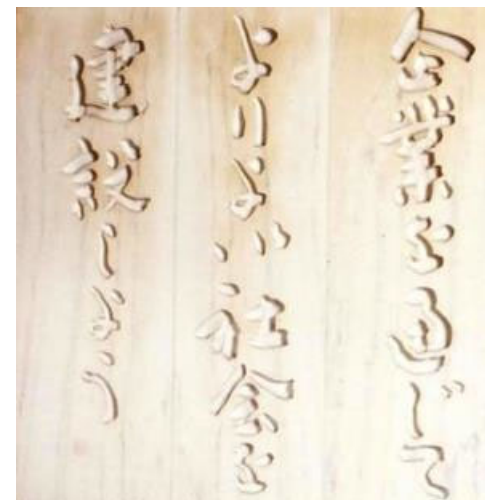 企業を通じて
よりよい社会を
建設しよう